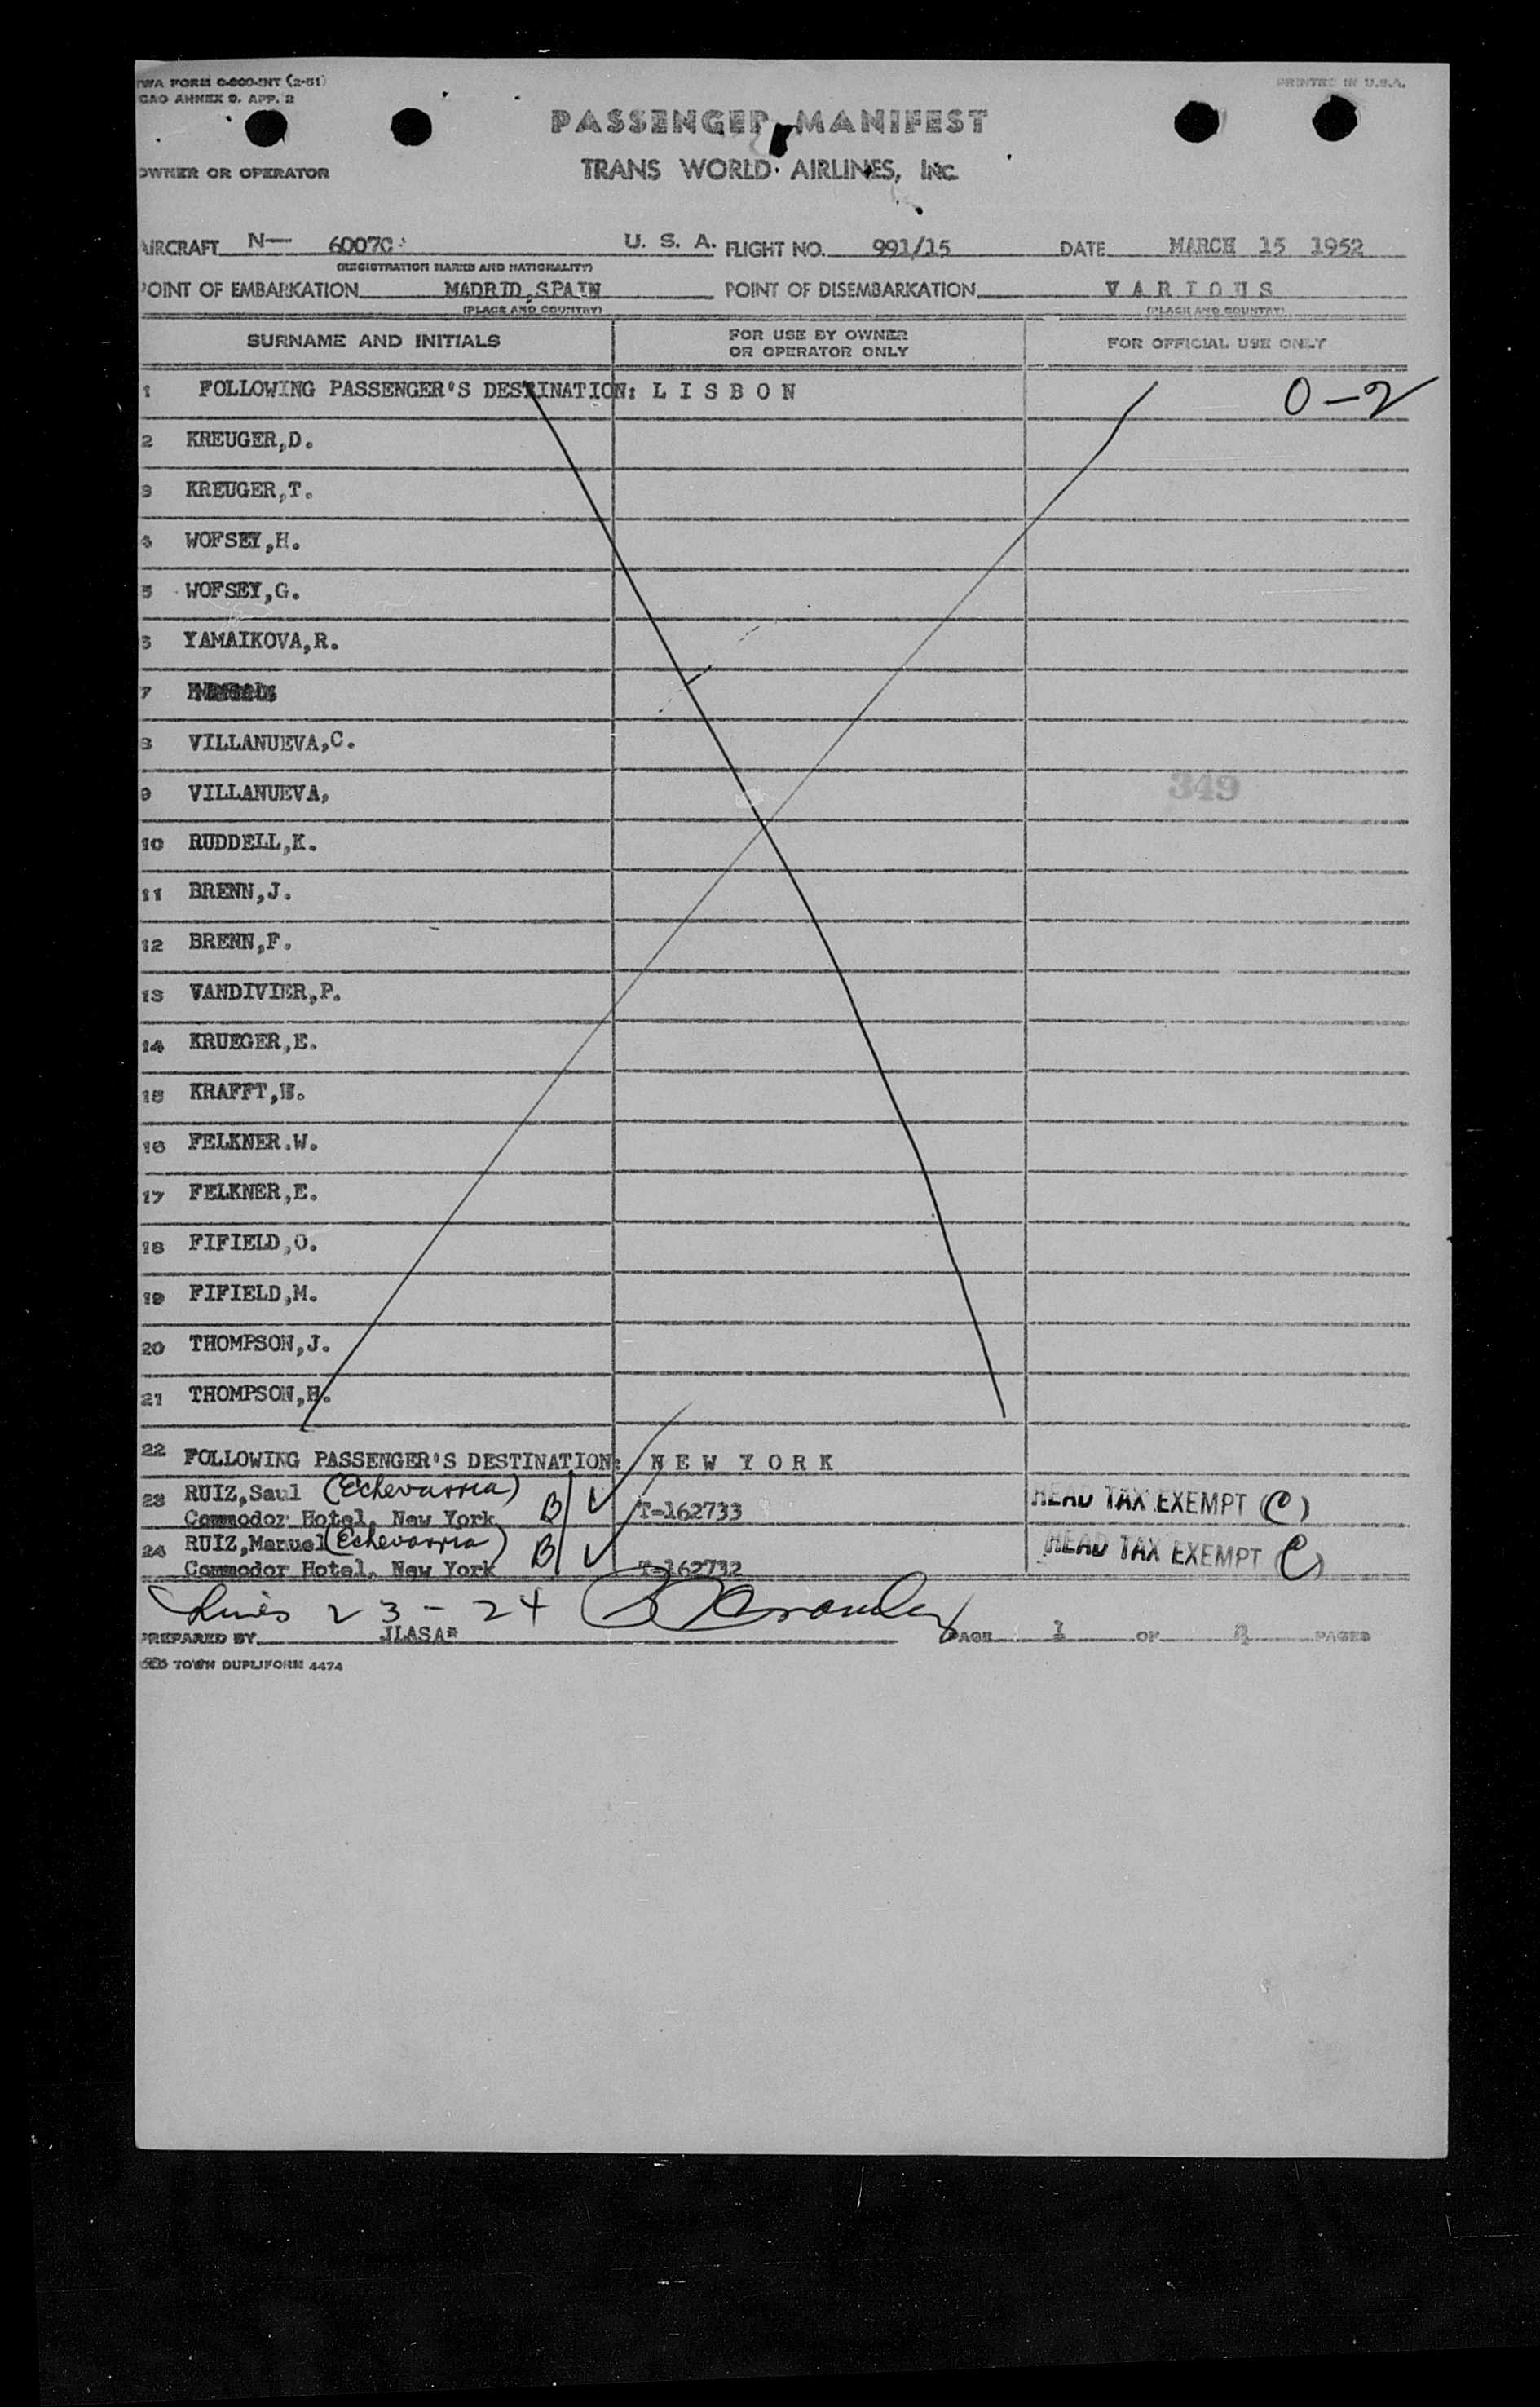 TWA FORM O-600-INT (2-51)
ICAO ANNEX 9. APP. 2
PRINTED IN U.S.A.
PASSENGER MANIFEST
OWNER OR OPERATOR
TRANS WORLD AIRLINES, INC.
AIRCRAFT N— 6007C U. S. A. FLIGHT NO. 991/15 DATE MARCH 15 1952
(REGISTRATION MARKS AND NATIONALITY)
POINT OF EMBARKATION MADRID,SPAIN POINT OF DISEMBARKATION VARIOUS
(PLACE AND COUNTRY) (PLACE AND COUNTRY)
SURNAME AND INITIALS FOR USE BY OWNER OR OPERATOR ONLY FOR OFFICIAL USE ONLY
1 FOLLOWING PASSENGER'S DESTINATION: LISBON 0-2
2 KREUGER,D.
3 KREUGER,T.
4 WOFSEY,H.
5 WOFSEY,G.
6 YAMAIKOVA,R.
7
8 VILLANUEVA,C.
9 VILLANUEVA,
349
10 RUDDELL,K.
11 BRENN,J.
12 BRENN,F.
13 VANDIVIER,P.
14 KRUEGER,E.
15 KRAFFT,
16 FELKNER.W.
17 FELKNER,E.
18 FIFIELD,O.
19 FIFIELD,M.
20 THOMPSON,J.
21 THOMPSON,H.
22 FOLLOWING PASSENGER'S DESTINATION: NEW YORK
23 RUIZ,Saul (Echevarria) B/ HEAD TAX EXEMPT (C)
Commodor Hotel, New York T-162733
24 RUIZ,Manuel (Echevarria) B/ HEAD TAX EXEMPT (C)
Commodor Hotel, New York T-162732
Lines 23-24
PREPARED BY JLASA* PAGE 1 OF 2 PAGES
TOWN DUPLIFORM 4474